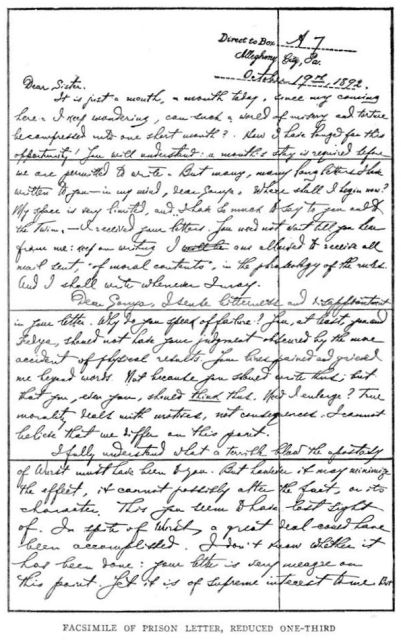 Direct to Box A 7
Allegheny City, Pa.
October 19th, 1892.
Dear Sister.
It is just a month, a month today, since my coming
here. I keep wondering, can such a world of misery and torture
be compressed into one short month? How I have longed for this
opportunity! You will understand: a month's stay is required before
we are permitted to write. But many, many long letters I have
written to you—in my mind, dear Sonya. Where shall I begin now?
My space is very limited, and I have so much to say to you and to
the Twin.—I received your letters. You need not wait till you hear
from me: keep on writing. I am allowed to receive all
mail sent, "of moral contents", in the phraseology of the rules.
And I shall write whenever I may.
Dear Sonya, I sense bitterness and disappointment
in your letter. Why do you speak of failure? You, at least, you and
Fedya, should not have your judgment obscured by the mere
accident of physical results. Your lines pained and grieved
me beyond words. Not because you should write thus; but
that you, even you, should think thus. Need I enlarge? True
morality deals with motives, not consequences. I cannot
believe that we differ on this point.
I fully understand what a terrible blow the apostasy
of Wurst must have been to you. But however it may minimize
the effect, it cannot possibly alter the fact, or its
character. This you seem to have lost sight
of. In spite of Wurst, a great deal could have
been accomplished. I don't know whether it
has been done: your letter is very meagre on
this point. Yet it is of supreme interest to me. But
FACSIMILE OF PRISON LETTER, REDUCED ONE-THIRD